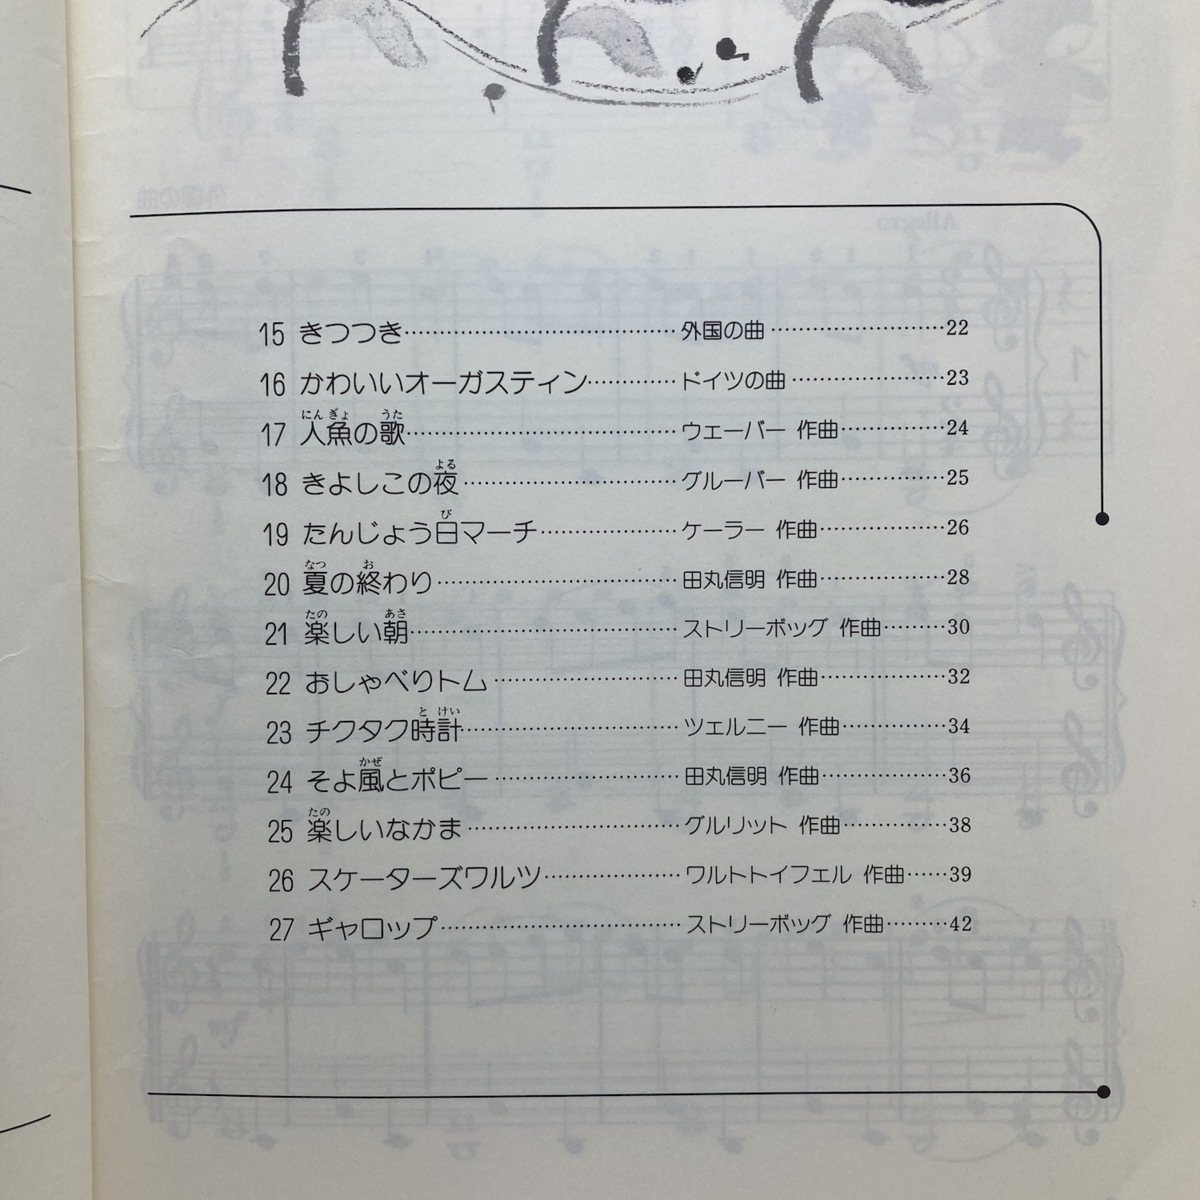 15 きつつき……………………………外国の曲……………………22
16 かわいいオーガスティン…………ドイツの曲…………………23
17 人魚の歌……………………………ウェーバー 作曲…………24
18 きよしこの夜………………………グルーバー 作曲…………25
19 たんじょう日マーチ………………ケーラー 作曲……………26
20 夏の終わり…………………………田丸信明 作曲……………28
21 楽しい朝……………………………ストリーボッグ 作曲……30
22 おしゃべりトム……………………田丸信明 作曲……………32
23 チクタク時計………………………ツェルニー 作曲…………34
24 そよ風とポピー……………………田丸信明 作曲……………36
25 楽しいなかま………………………グルリット 作曲…………38
26 スケーターズワルツ………………ワルトトイフェル 作曲……39
27 ギャロップ…………………………ストリーボッグ 作曲……42